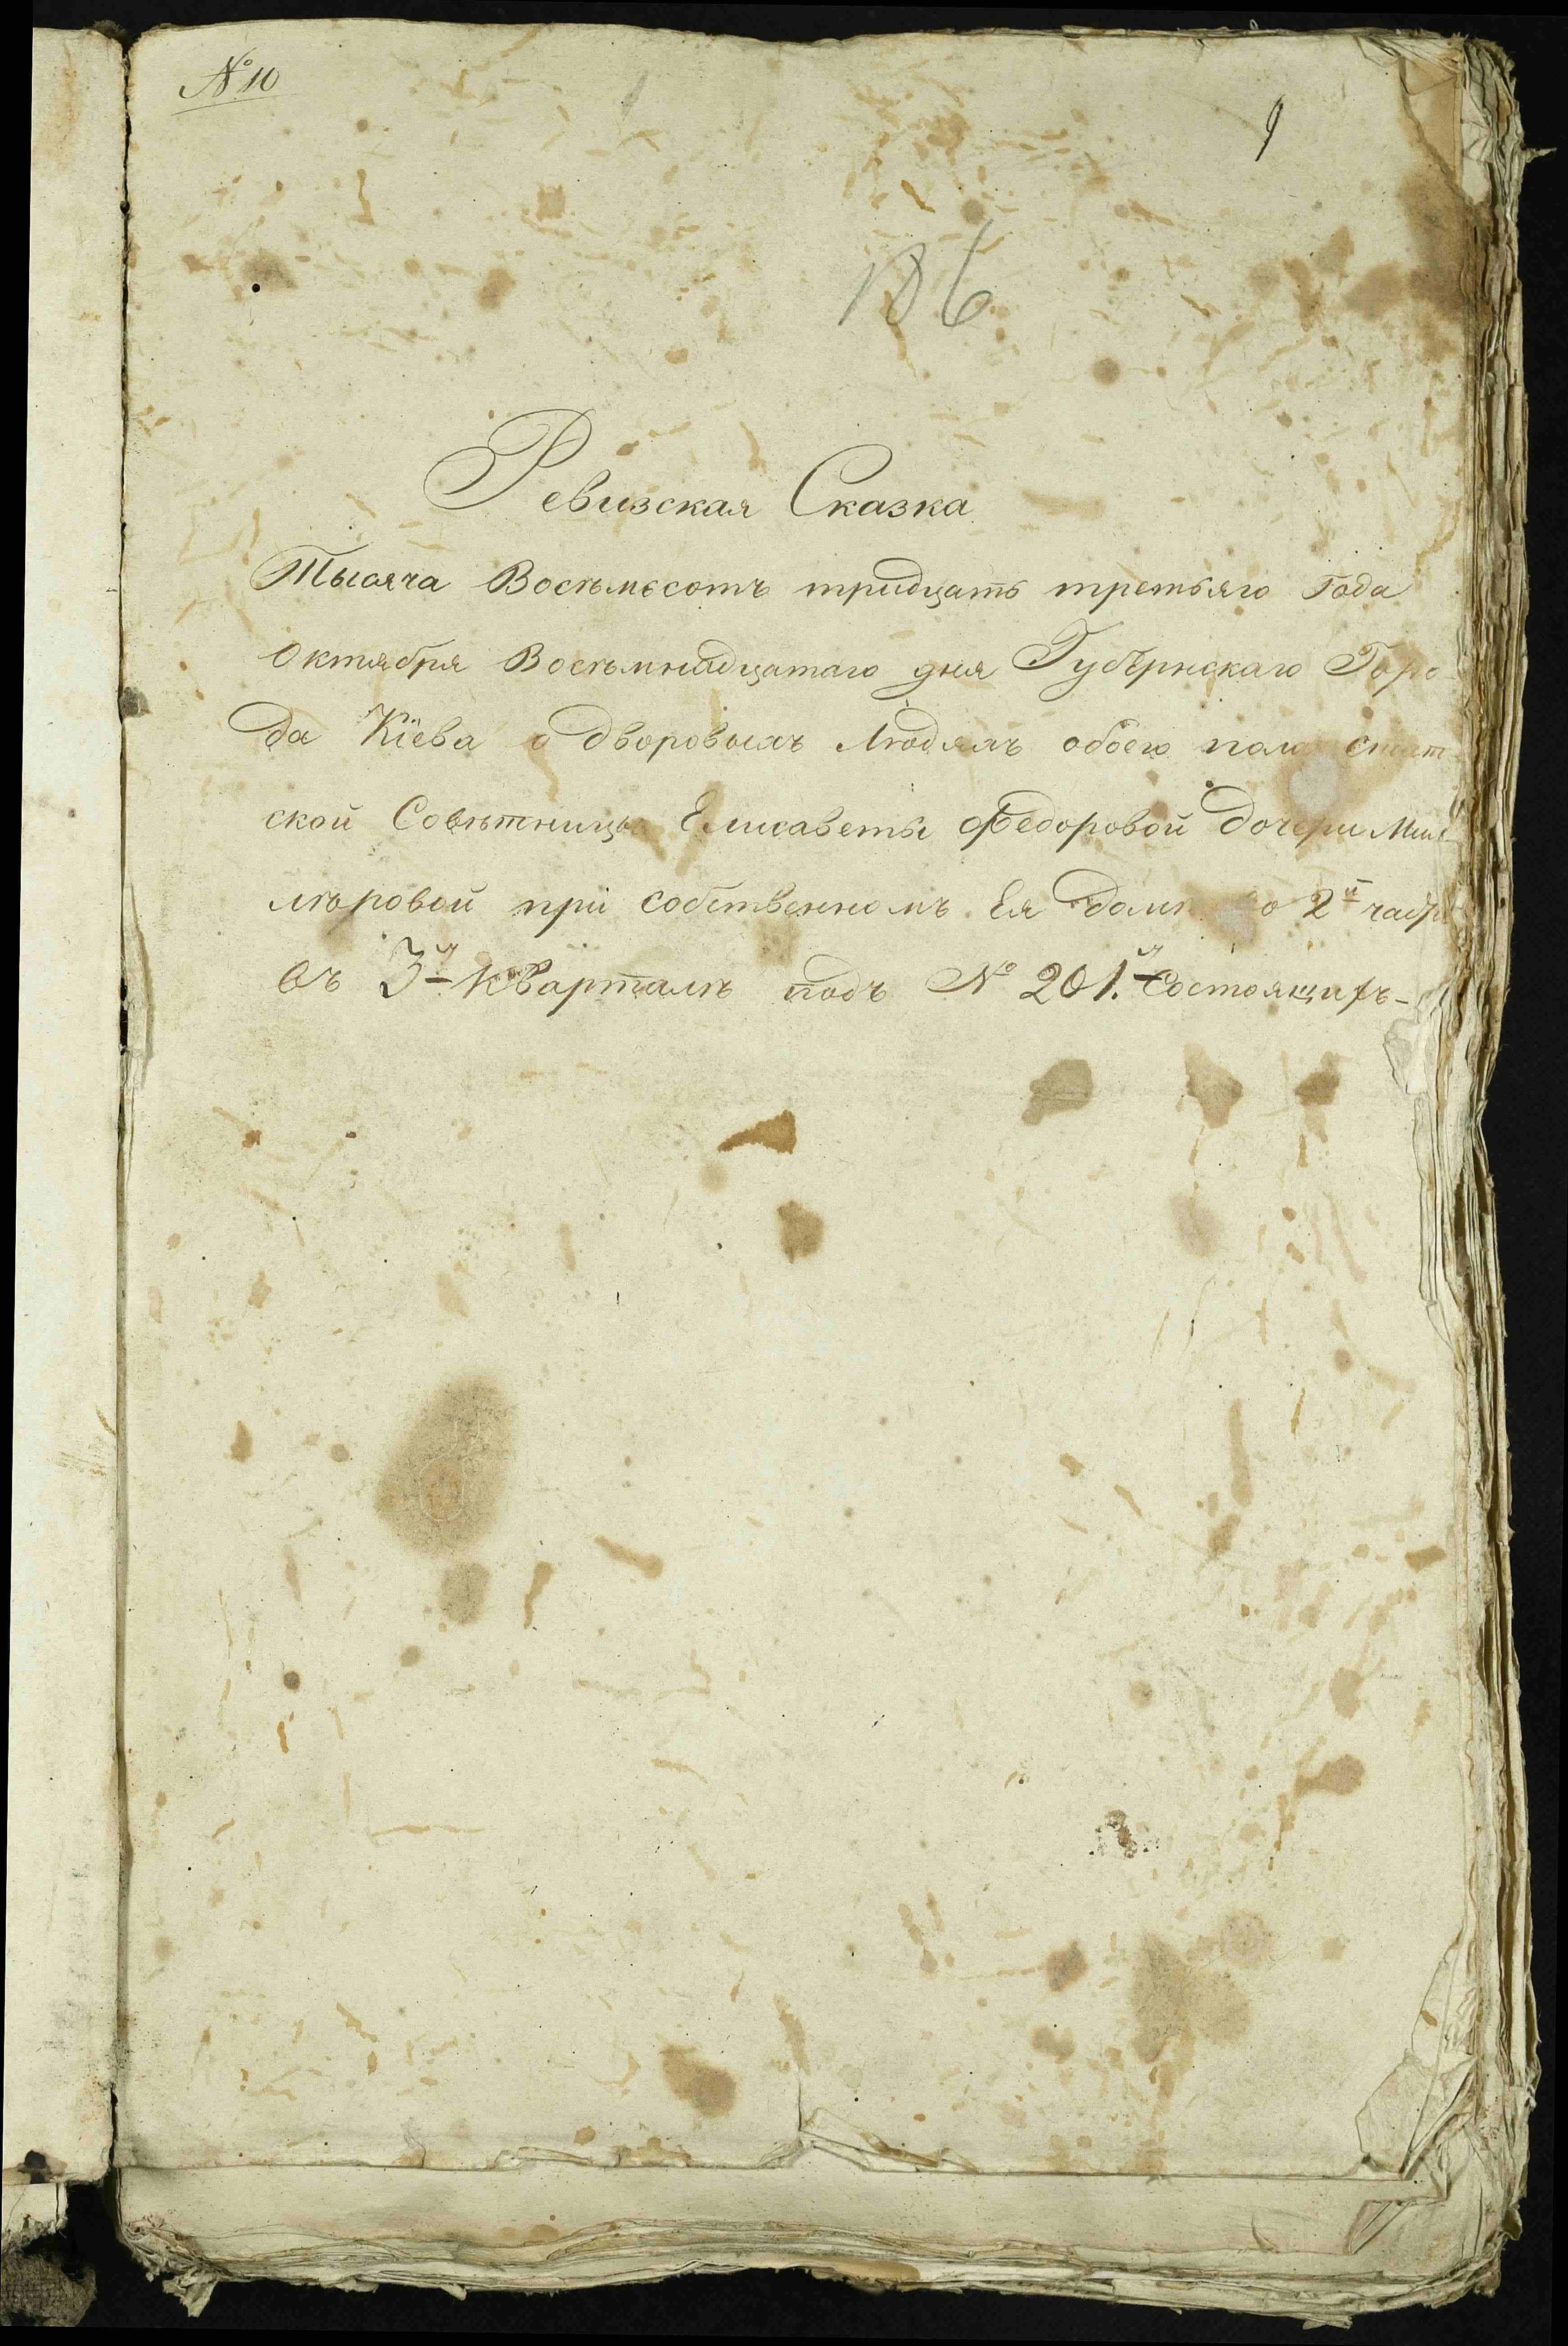 № 10
9
186
Ревизская Сказка
Тысяча Восемьсотъ тридцать третьяго Года
Октября Восемнадцатаго дня Губернскаго Горо-
да Кіева о дворовыхъ людяхъ обоего пола Стат-
ской Совѣтницы Елисаветы Федоровой дочери
при собственномъ Ея домѣ во 2й части
въ 3мъ Кварталѣ подъ № 201.мъ Состоящихъ-